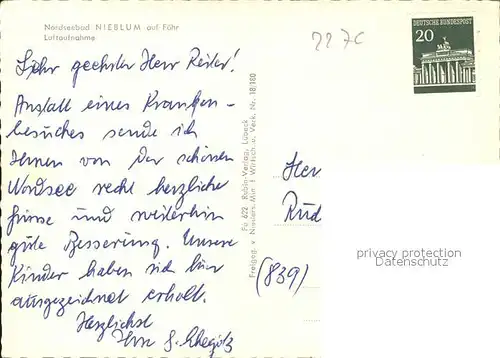 Nordseebad NIEBLUM auf Föhr
Luftaufnahme
Sehr geehrter Herr Reiter!
Anstatt eines Kranken-
besuches sende ich
Ihnen von der schönen
Nordsee recht herzliche
Grüsse und weiterhin
gute Besserung. Unsere
Kinder haben sich hier
ausgezeichnet erholt.
Herzlichst
Ihre
Fö 622 Rabin-Verlag, Lübeck
Freigeg. v. Nieders. Min. f. Wirtsch. u. Verk. Nr. 18/180
DEUTSCHE BUNDESPOST
20
Her
Rud
(839)
privacy protection
Datenschutz